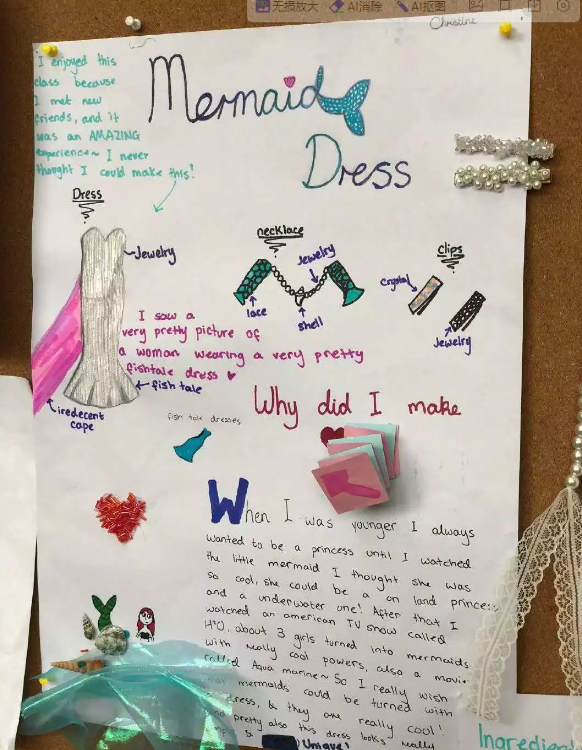 无损放大 AI消除 AI抠图
Christine
I enjoyed this
class because
I met new
friends, and it
was an AMAZING
experience~ I never
thought I could make this!
Mermaid
Dress
Dress
Jewelry
necklace
Jewelry
lace
shell
clips
crystal
Jewelry
I saw a
very pretty picture of
a woman wearing a very pretty
fishtale dress
fish tale
iredecent
cape
Why did I make
fish tale dresses
When I was younger I always
wanted to be a princess until I watched
the little mermaid I thought she was
so cool, she could be a on land princess
and a underwater one! After that I
watched an american TV show called
H2O, about 3 girls turned into mermaids
with really cool powers, also a movie
called Aqua marine~ So I really wish
mermaids could be turned with
dress, & they are really cool!
pretty also this dress looks really
& Unique!